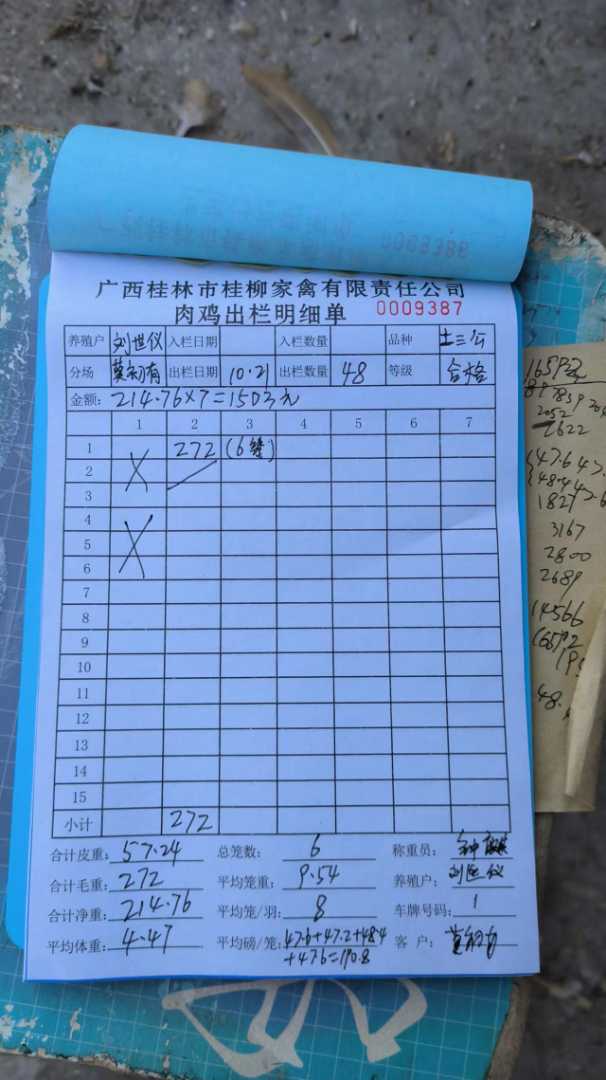 广西桂林市桂柳家禽有限责任公司
肉鸡出栏明细单 0009387
养殖户 刘世仪 入栏日期 入栏数量 品种 土三公
分场 莫初有 出栏日期 10.21 出栏数量 48 等级 合格
金额: 214.76×7=1503元
1 2 3 4 5 6 7
1 272 (6笼)
2
3
4
5
6
7
8
9
10
11
12
13
14
15
小计 272
合计皮重: 57.24 总笼数: 6 称重员:
合计毛重: 272 平均笼重: 9.54 养殖户: 刘世仪
合计净重: 214.76 平均笼/羽: 8 车牌号码: 1
平均体重: 4.47 平均磅/笼: 47.6+47.2+48.4
+47.6=190.8 客户:
2622
1827
3167
2800
2689
14566
48.